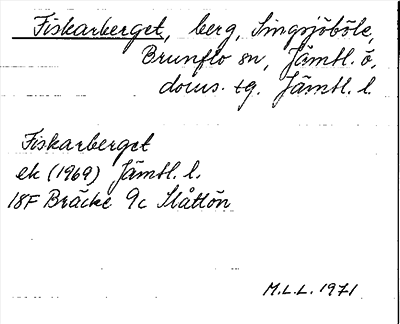 Fiskarberget, berg, Singsjöböle,
Brunflo sn, Jämtl. ö,
doms. tg. Jämtl. l.
Fiskarberget
ek (1969) Jämtl. l.
18F Bräcke 9c Slåttön
M.L.L. 1971